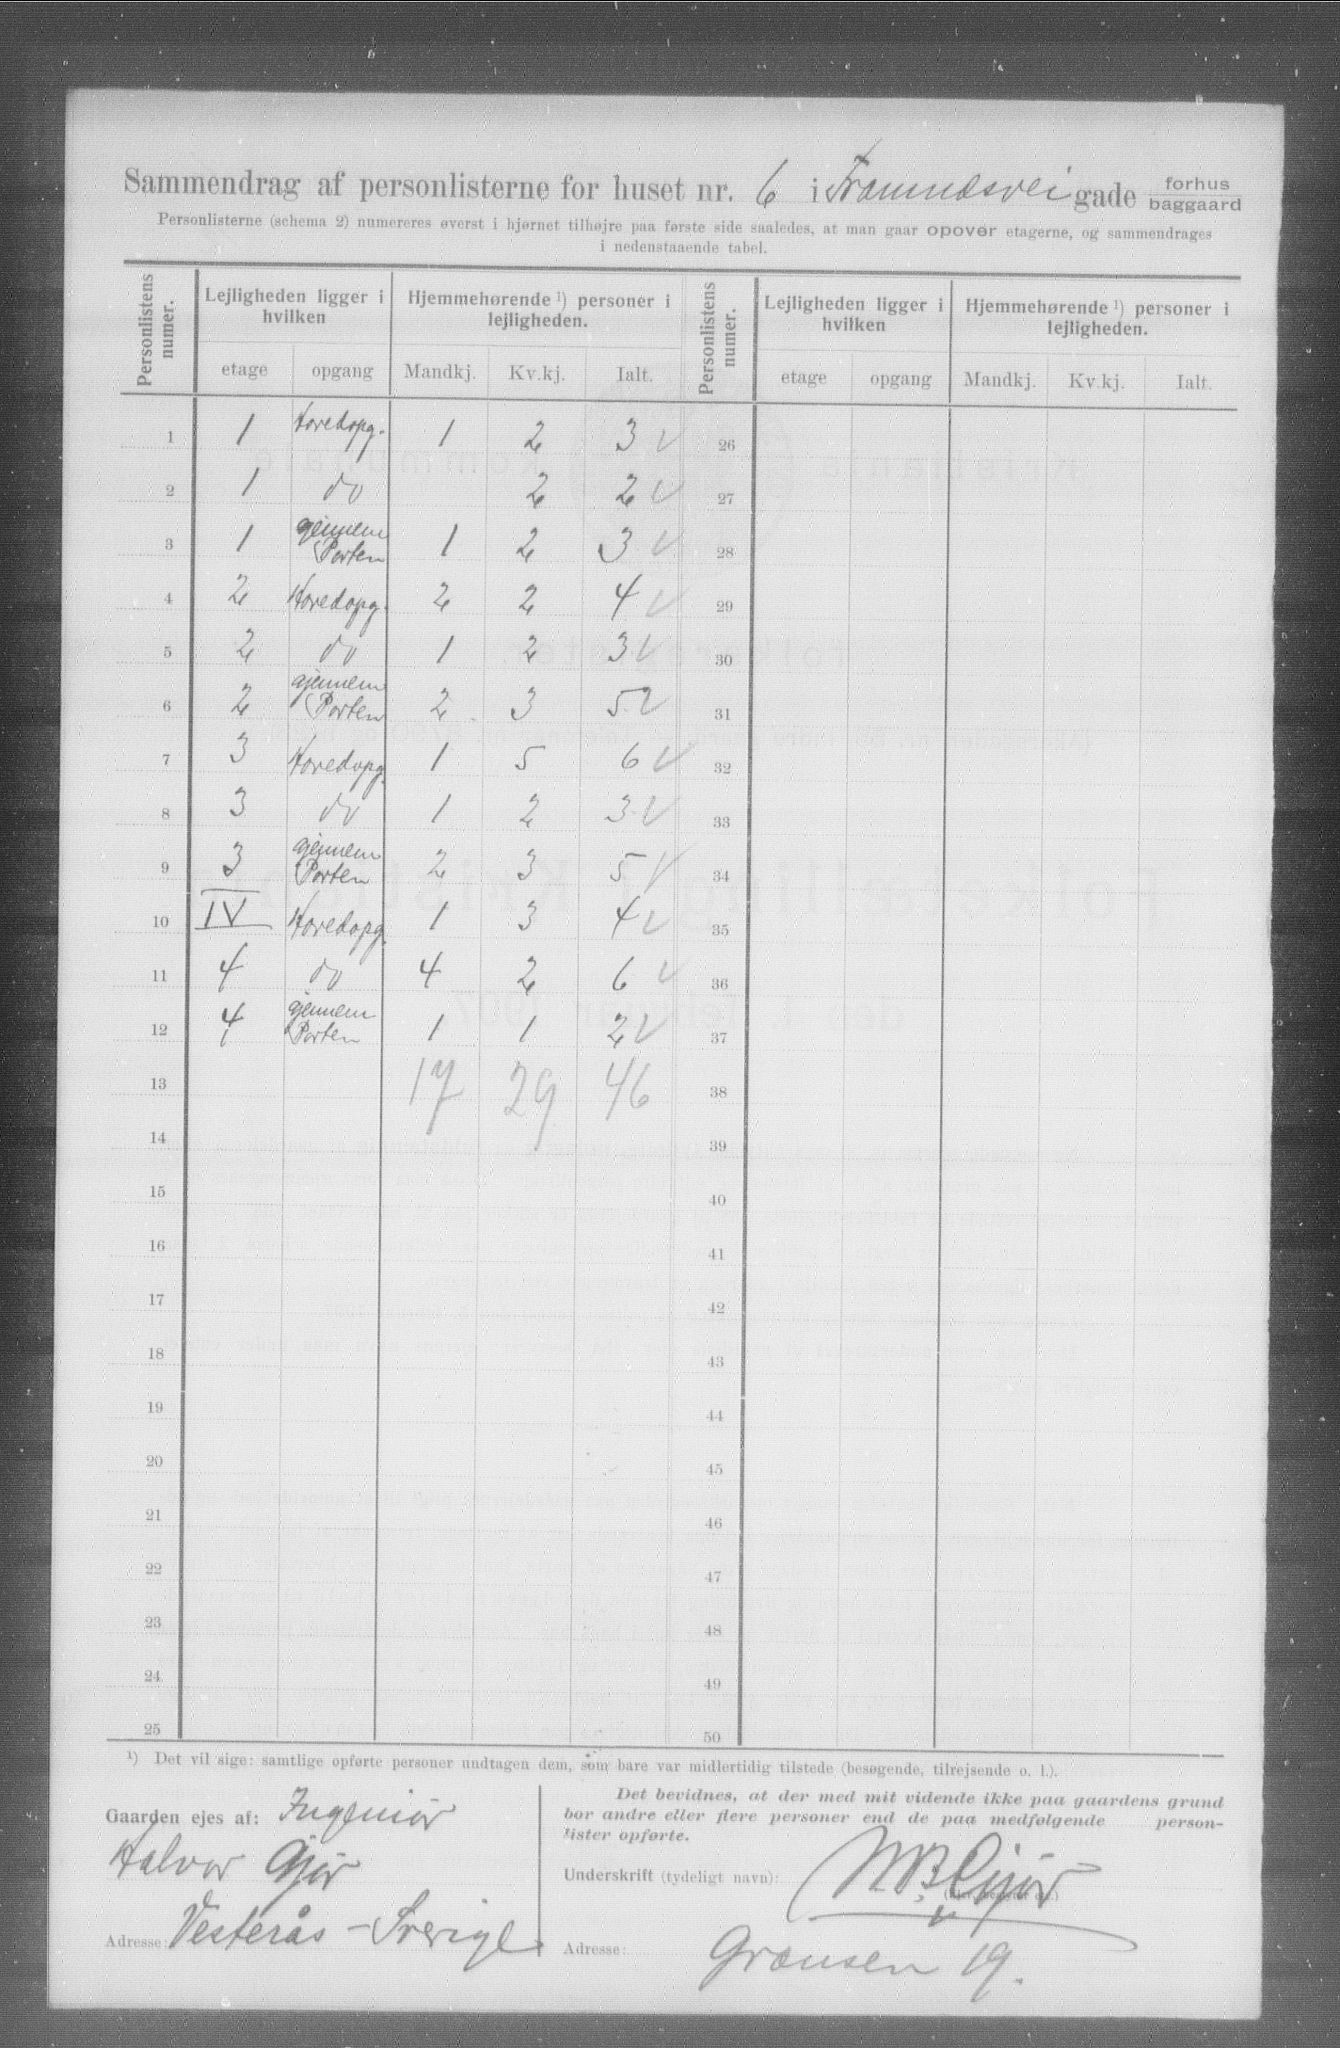 Sammendrag af personlisterne for huset nr. 6 i Framnæsvei gade forhus baggaard
Personlisterne (schema 2) numereres øverst i hjørnet tilhøjre paa første side saaledes, at man gaar opover etagerne, og sammendrages
i nedenstaaende tabel.
Personlistens numer. Lejligheden ligger i hvilken Hjemmehørende ¹) personer i lejligheden. Personlistens numer. Lejligheden ligger i hvilken Hjemmehørende ¹) personer i lejligheden.
etage opgang Mandkj. Kv.kj. Ialt. etage opgang Mandkj. Kv.kj. Ialt.
1 1 Hovedopg. 1 2 3 √ 26
2 1 do 2 2 √ 27
3 1 gjennem Porten 1 2 3 √ 28
4 2 Hovedopg. 2 2 4 √ 29
5 2 do 1 2 3 √ 30
6 2 gjennem Porten 2 3 5 √ 31
7 3 Hovedopg. 1 5 6 √ 32
8 3 do 1 2 3 √ 33
9 3 gjennem Porten 2 3 5 √ 34
10 IV Hovedopg. 1 3 4 √ 35
11 4 do 4 2 6 √ 36
12 4 gjennem Porten 1 1 2 √ 37
13 17 29 46 38
14 39
15 40
16 41
17 42
18 43
19 44
20 45
21 46
22 47
23 48
24 49
25 50
¹) Det vil sige: samtlige opførte personer undtagen dem, som bare var midlertidig tilstede (besøgende, tilrejsende o. l.).
Gaarden ejes af: Ingeniør
Halvor Gjør
Adresse: Vesterås - Sverige
Det bevidnes, at der med mit vidende ikke paa gaardens grund
bor andre eller flere personer end de paa medfølgende person-
lister opførte.
Underskrift (tydeligt navn):
Adresse: Grænsen 19.